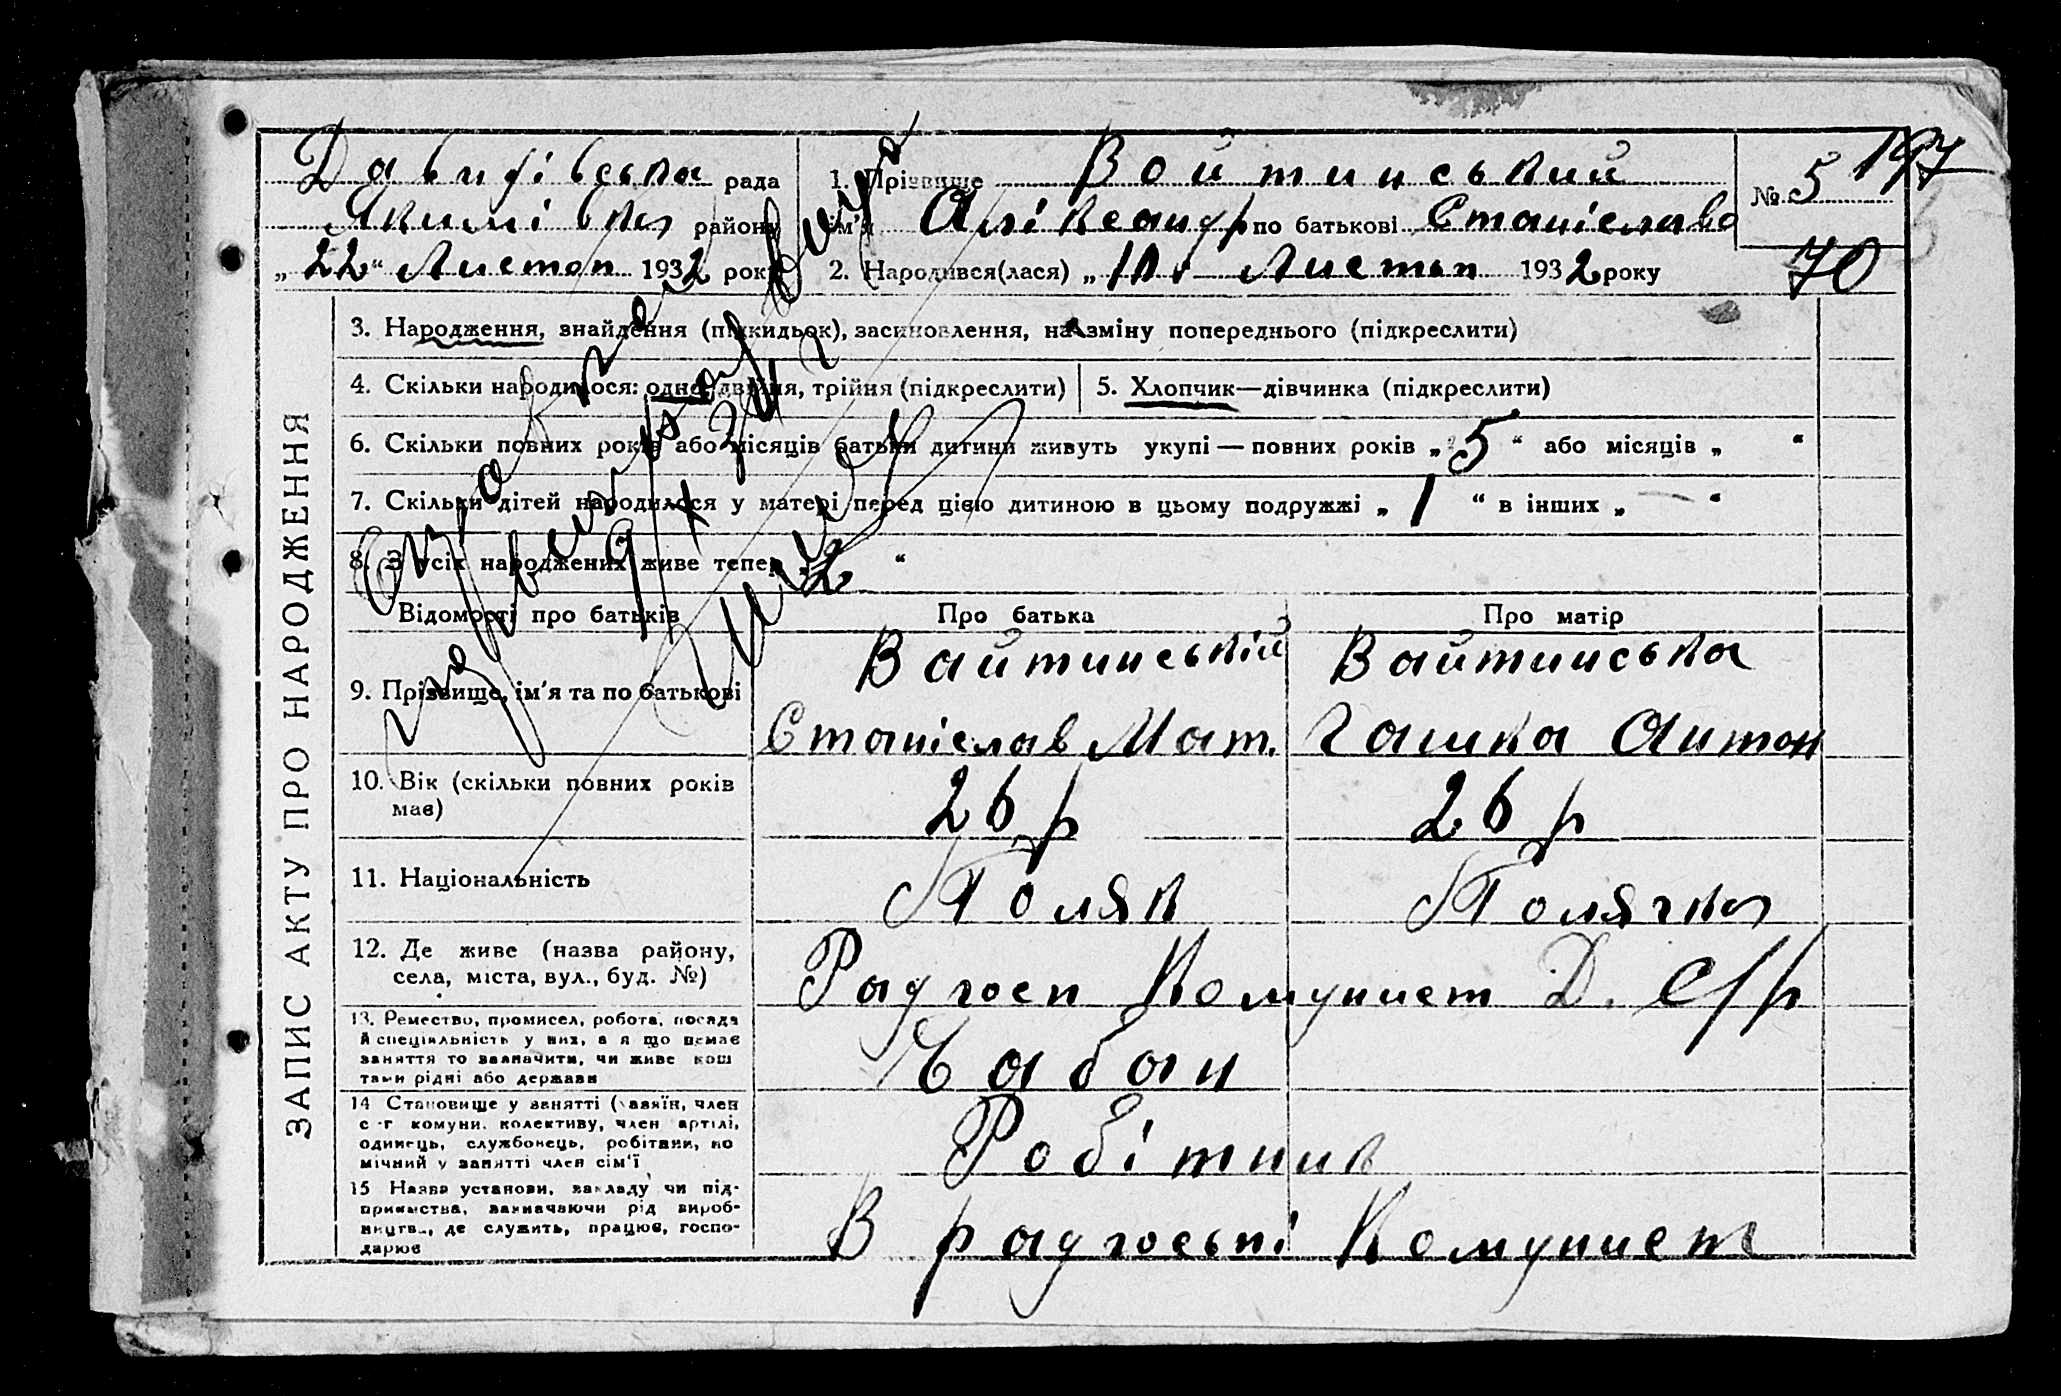 Давидівська рада
Якимівка району
„22“ Листоп 1932 року
1. Прізвище Войтинський
ім'я Аліксандр по батькові Станіславо
2. Народився(лася) „10. Листоп 1932 року
№ 5
197
70
ЗАПИС АКТУ ПРО НАРОДЖЕННЯ
3. Народження, знайдення (підкидьок), засиновлення, на зміну попереднього (підкреслити)
4. Скільки народилося: одно, двійня, трійня (підкреслити)
5. Хлопчик—дівчинка (підкреслити)
6. Скільки повних років або місяців батьки дитини живуть укупі — повних років „5“ або місяців „ “
7. Скільки дітей народилося у матері перед цією дитиною в цьому подружжі „1“ в інших „—“
8. З усіх народжених живе тепер „2“
Відомості про батьків
Про батька
Про матір
9. Прізвище, ім'я та по батькові
Вайтинській
Станіслав Мат.
Вайтинська
Гашка Антон
10. Вік (скільки повних років має)
26 р
26 р
11. Національність
Поляк
Полячка
12. Де живе (назва району,
села, міста, вул., буд. №)
Радгосп Комунист Д. С/р
13. Ремество, промисел, робота, посада
й спеціяльність у них, а я що немає
заняття то зазначити, чи живе кош
тами рідні або держави
Чабан
14 Становище у занятті (хазяїн, член
с-г комуни, колективу, член артілі,
одинець, службовець, робітник, по
мічний у занятті член сім'ї
Робітник
15 Назва установи, закладу чи під-
приємства, зазначаючи рід вироб-
ництв., де служить, працює, госпо-
дарює
В радгоспі Комунист